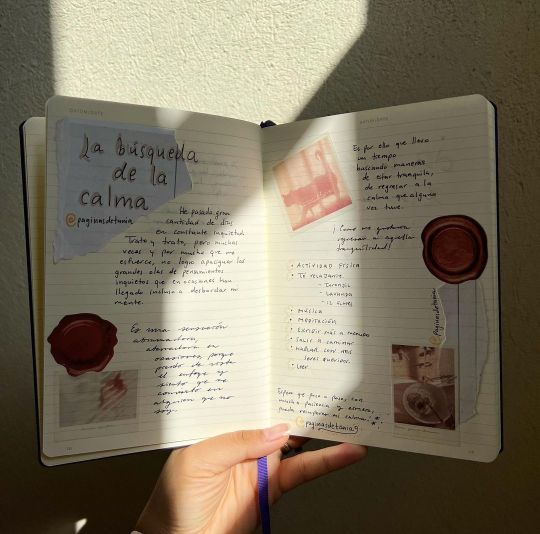 DATUM/DATE
La búsqueda
de la
calma
@paginasdetania
He pasado gran
cantidad de días
en constante inquietud.
Trato y trato, pero muchas
veces y por mucho que me
esfuerce, no logro apaciguar las
grandes olas de pensamientos
inquietos que en ocasiones han
llegado incluso a desbordar mi
mente.
Es una sensación
abrumadora,
aterradora en
ocasiones, porque
pierdo de vista
el enfoque y
siento que me
convierto en
alguien que no
soy.
DATUM/DATE
Es por ello que llevo
un tiempo
buscando maneras
de estar tranquila,
de regresar a la
calma que alguna
vez tuve.
¡Como me gustaría
regresar a aquella
tranquilidad!
• ACTIVIDAD FÍSICA
• TÉ RELAJANTE
- LAVANDA
- 12 FLORES
• MÚSICA
• MEDITACIÓN
• ESCRIBIR MÁS A MENUDO
• SALIR A CAMINAR
• HABLAR CON MIS
SERES QUERIDOS
• LEER
@paginasdetania
Espero que poco a poco, con
mucha paciencia y esmero,
pueda recuperar mi calma!
@paginasdetania9